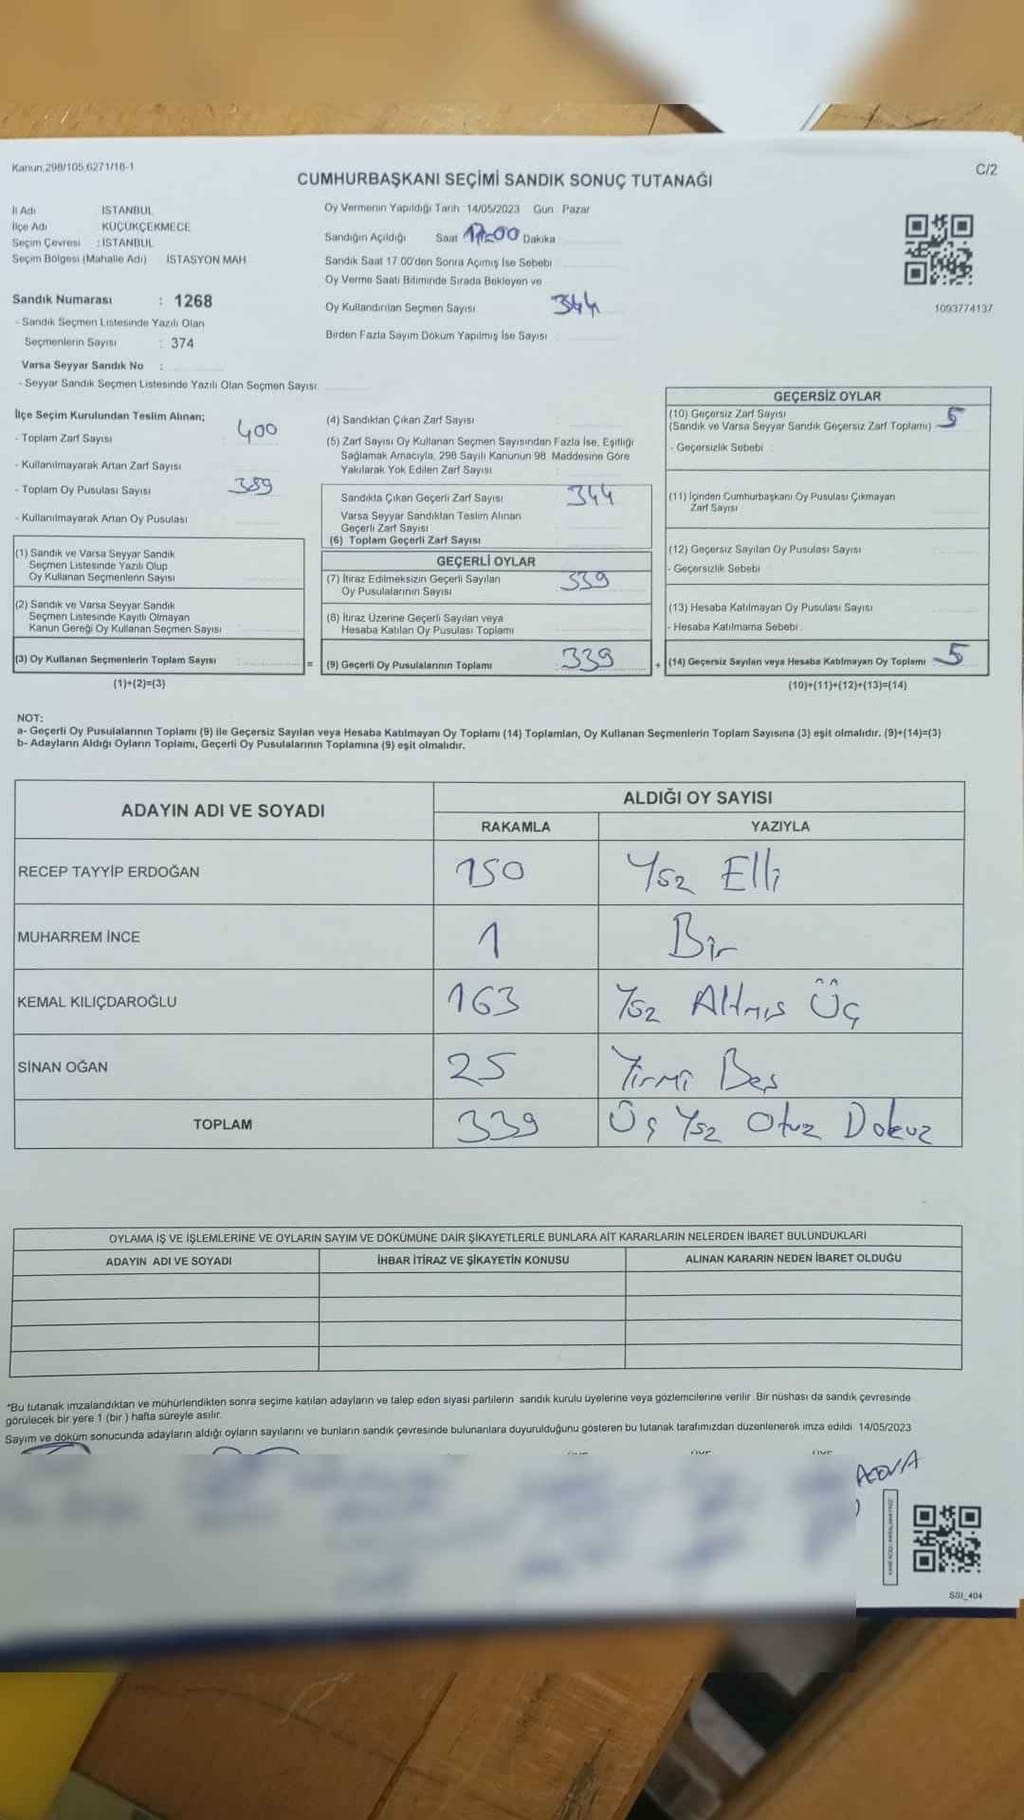 Kanun 298/105,6271/18-1
C/2
CUMHURBAŞKANI SEÇİMİ SANDIK SONUÇ TUTANAĞI
İl Adı İSTANBUL
İlçe Adı KÜÇÜKÇEKMECE
Seçim Çevresi : İSTANBUL
Seçim Bölgesi (Mahalle Adı) İSTASYON MAH
Sandık Numarası : 1268
- Sandık Seçmen Listesinde Yazılı Olan
Seçmenlerin Sayısı : 374
Varsa Seyyar Sandık No :
- Seyyar Sandık Seçmen Listesinde Yazılı Olan Seçmen Sayısı
Oy Vermenin Yapıldığı Tarih : 14/05/2023 Gün Pazar
Sandığın Açıldığı Saat 17:00 Dakika
Sandık Saat 17 00'den Sonra Açımış İse Sebebi
Oy Verme Saati Bitiminde Sırada Bekleyen ve
Oy Kullandırılan Seçmen Sayısı 344
Birden Fazla Sayım Döküm Yapılmış İse Sayısı
1093774137
İlçe Seçim Kurulundan Teslim Alınan;
- Toplam Zarf Sayısı 400
- Kullanılmayarak Artan Zarf Sayısı
- Toplam Oy Pusulası Sayısı 389
- Kullanılmayarak Artan Oy Pusulası
(1) Sandık ve Varsa Seyyar Sandık
Seçmen Listesinde Yazılı Olup
Oy Kullanan Seçmenlerin Sayısı
(2) Sandık ve Varsa Seyyar Sandık
Seçmen Listesinde Kayıtlı Olmayan
Kanun Gereği Oy Kullanan Seçmen Sayısı
(3) Oy Kullanan Seçmenlerin Toplam Sayısı : =
(1)+(2)=(3)
(4) Sandıktan Çıkan Zarf Sayısı
(5) Zarf Sayısı Oy Kullanan Seçmen Sayısından Fazla İse, Eşitliği
Sağlamak Amacıyla, 298 Sayılı Kanunun 98 Maddesine Göre
Yakılarak Yok Edilen Zarf Sayısı
Sandıkta Çıkan Geçerli Zarf Sayısı 344
Varsa Seyyar Sandıktan Teslim Alınan
Geçerli Zarf Sayısı
(6) Toplam Geçerli Zarf Sayısı
GEÇERLİ OYLAR
(7) İtiraz Edilmeksizin Geçerli Sayılan
Oy Pusulalarının Sayısı 339
(8) İtiraz Üzerine Geçerli Sayılan veya
Hesaba Katılan Oy Pusulası Toplamı
(9) Geçerli Oy Pusulalarının Toplamı 339 +
GEÇERSİZ OYLAR
(10) Geçersiz Zarf Sayısı
(Sandık ve Varsa Seyyar Sandık Geçersiz Zarf Toplamı) 5
- Geçersizlik Sebebi
(11) İçinden Cumhurbaşkanı Oy Pusulası Çıkmayan
Zarf Sayısı
(12) Geçersiz Sayılan Oy Pusulası Sayısı
- Geçersizlik Sebebi
(13) Hesaba Katılmayan Oy Pusulası Sayısı
- Hesaba Katılmama Sebebi
(14) Geçersiz Sayılan veya Hesaba Katılmayan Oy Toplamı 5
(10)+(11)+(12)+(13)=(14)
NOT:
a- Geçerli Oy Pusulalarının Toplamı (9) ile Geçersiz Sayılan veya Hesaba Katılmayan Oy Toplamı (14) Toplamları, Oy Kullanan Seçmenlerin Toplam Sayısına (3) eşit olmalıdır. (9)+(14)=(3)
b- Adayların Aldığı Oyların Toplamı, Geçerli Oy Pusulalarının Toplamına (9) eşit olmalıdır.
ADAYIN ADI VE SOYADI
ALDIĞI OY SAYISI
RAKAMLA YAZIYLA
RECEP TAYYİP ERDOĞAN 150 Ysz Elli
MUHARREM İNCE 1 Bir
KEMAL KILIÇDAROĞLU 163 Ysz Altmış Üç
SİNAN OĞAN 25 Yirmi Beş
TOPLAM 339 Üç Ysz Otuz Dokuz
OYLAMA İŞ VE İŞLEMLERİNE VE OYLARIN SAYIM VE DÖKÜMÜNE DAİR ŞİKAYETLERLE BUNLARA AİT KARARLARIN NELERDEN İBARET BULUNDUKLARI
ADAYIN ADI VE SOYADI İHBAR İTİRAZ VE ŞİKAYETİN KONUSU ALINAN KARARIN NEDEN İBARET OLDUĞU
*Bu tutanak imzalandıktan ve mühürlendikten sonra seçime katılan adayların ve talep eden siyasi partilerin sandık kurulu üyelerine veya gözlemcilerine verilir. Bir nüshası da sandık çevresinde
görülecek bir yere 1 (bir ) hafta süreyle asılır.
Sayım ve döküm sonucunda adayların aldığı oyların sayılarını ve bunların sandık çevresinde bulunanlara duyurulduğunu gösteren bu tutanak tarafımızdan düzenlenerek imza edildi 14/05/2023
SSI_404